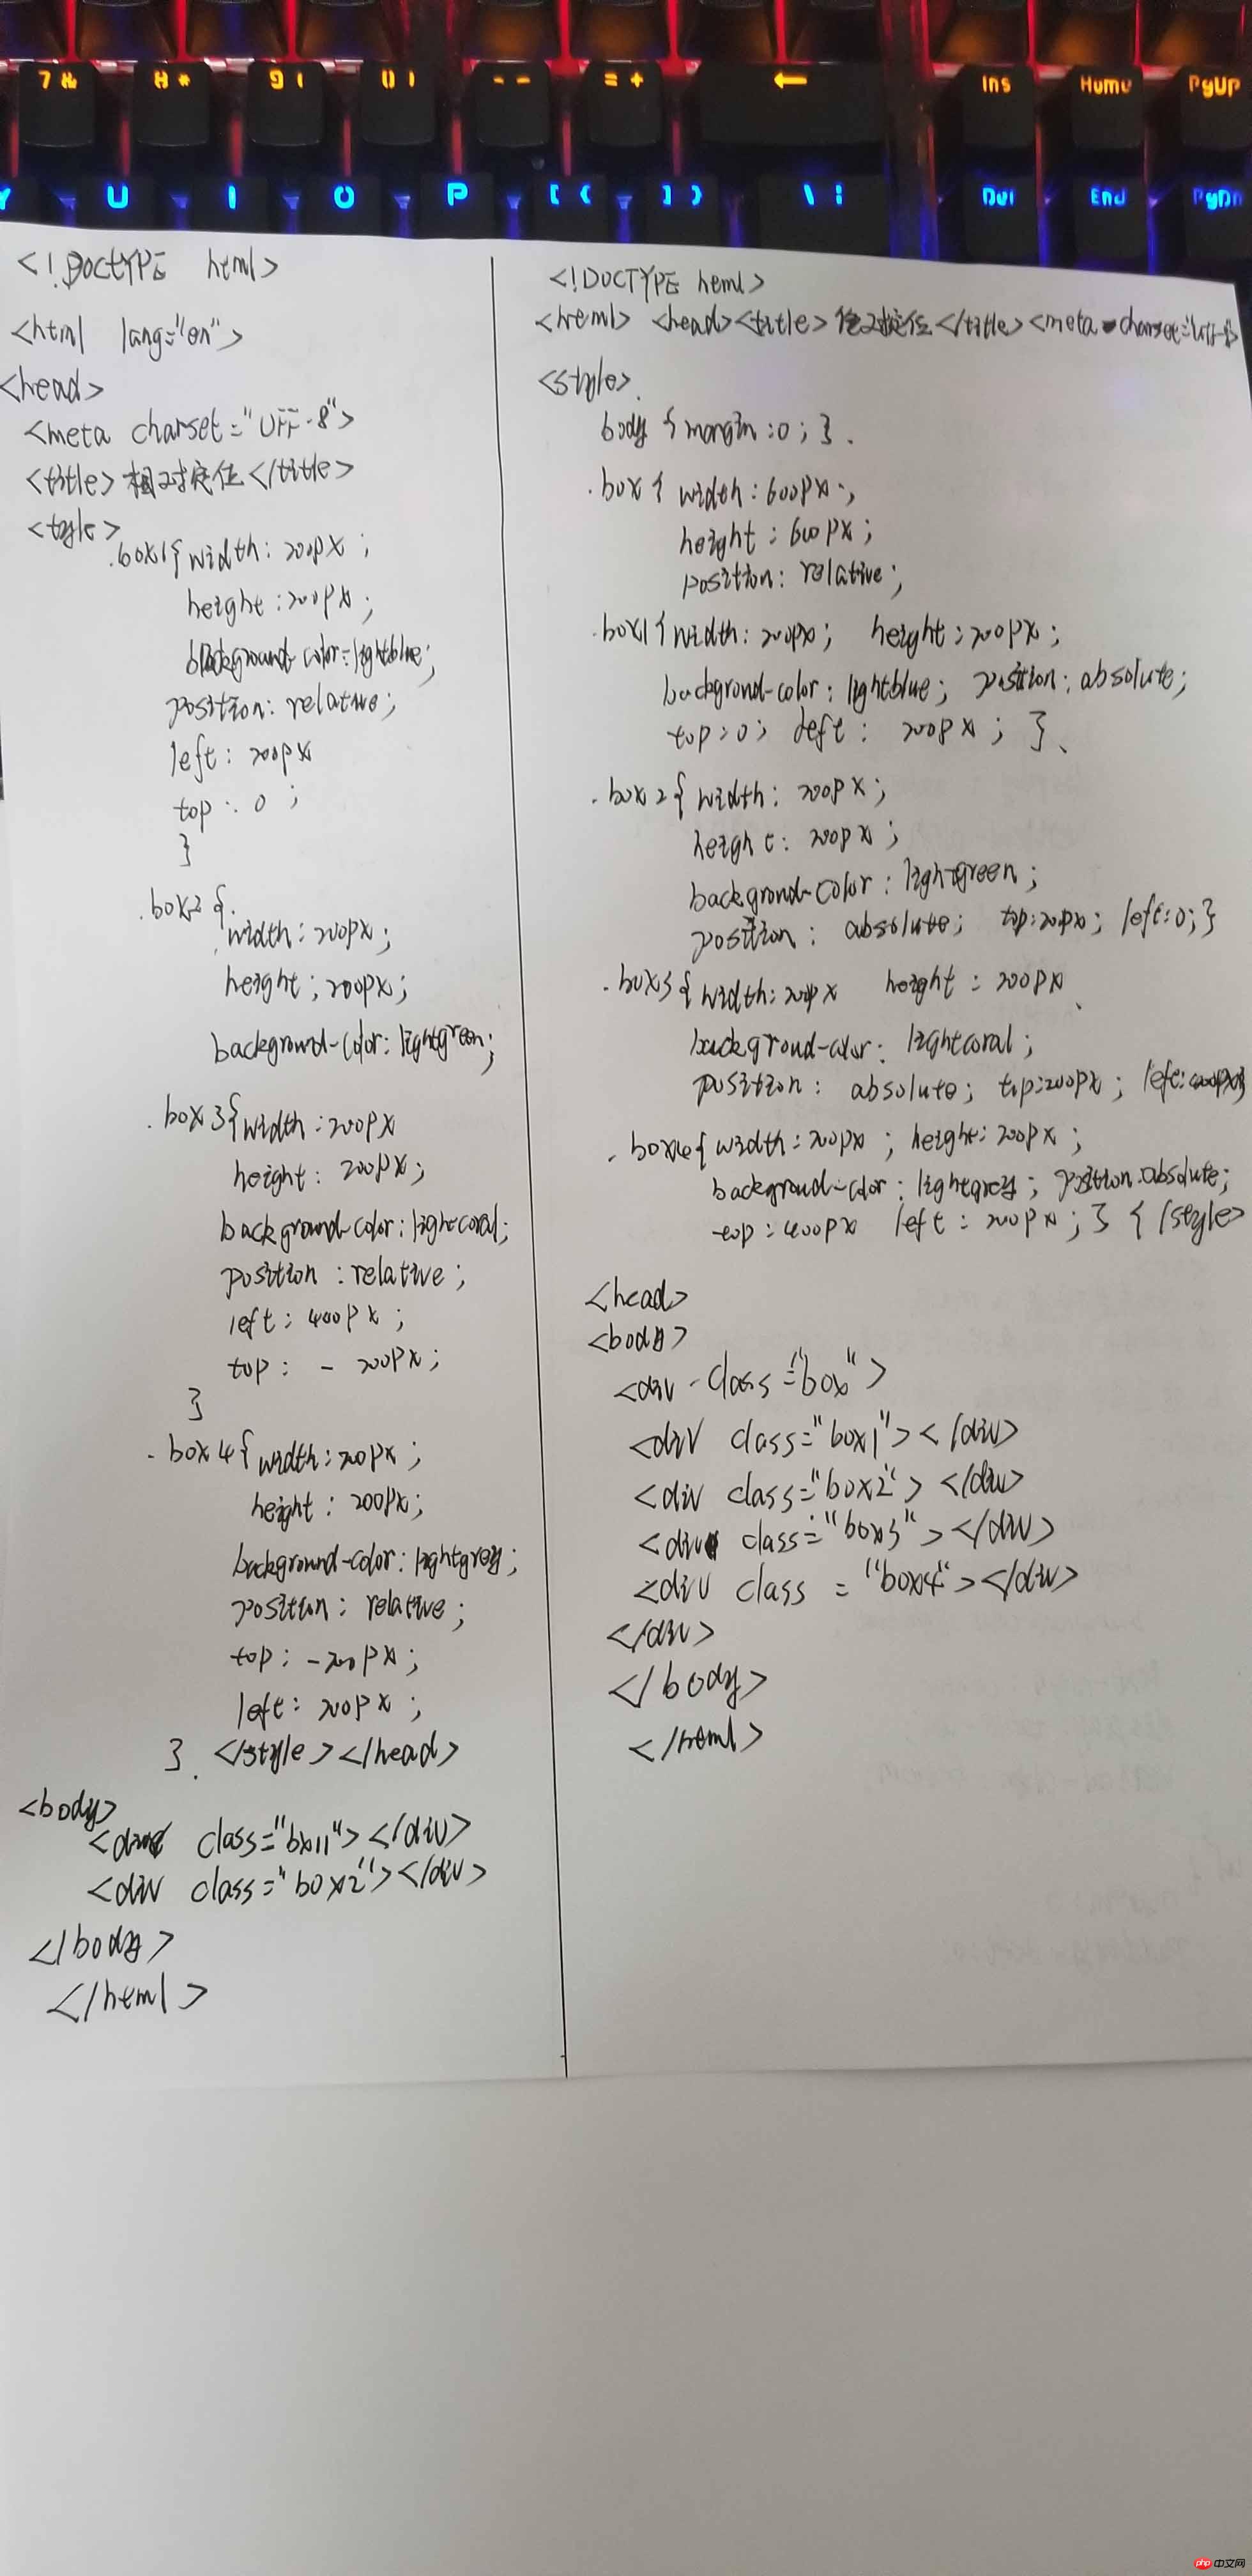 7 & 8 * 9 ( 0 ) - - = + ← Ins Home PgUp
Y U I O P [ { ] } \ | Del End PgDn
<!DOCTYPE html>
<html lang="en">
<head>
<meta charset="UTF-8">
<title>相对定位</title>
<tyle>
.box1{width: 200px ;
height:200px;
background-color:lightblue;
position: relative;
left: 200px
top: 0 ;
}
.box2 {
width: 200px;
height: 200px;
background-color: lightgreen;
.box3{width:200px
height: 200px;
background-color:lightcoral;
position :relative;
left: 400px ;
top: - 200px;
}
.box4{width:200px;
height: 200px;
background-color:lightgrey;
position: relative;
top: -200px;
left: 200px ;
} </style></head>
<body>
<div class="box1"></div>
<div class="box2"></div>
</body>
</html>
<!DOCTYPE html>
<html> <head><title>绝对定位</title><meta charset="UTF-8">
<style>
body {margin:0;}
.box{ width:600px;
height:600px;
position: relative;
.box1{width: 200px; height:200px;
backgrond-color: lightblue; position: absolute;
top:0; left: 200px; }
.box2{ width: 200px;
height: 200px;
backgrond-color: lightgreen;
position: absolute; top:200px; left:0;}
.box3{width:200px height: 200px
backgroud-color: lightcoral;
position: absolute; top:200px; left:400px}
.box4{width:200px; height:200px;
backgroud-color: lightgrey; position:absolute;
top:400px left:200px;} </style>
<head>
<body>
<div class="box">
<div class="box1"></div>
<div class="box2"></div>
<div class="box3"></div>
<div class="box4"></div>
</div>
</body>
</html>
php 中文网